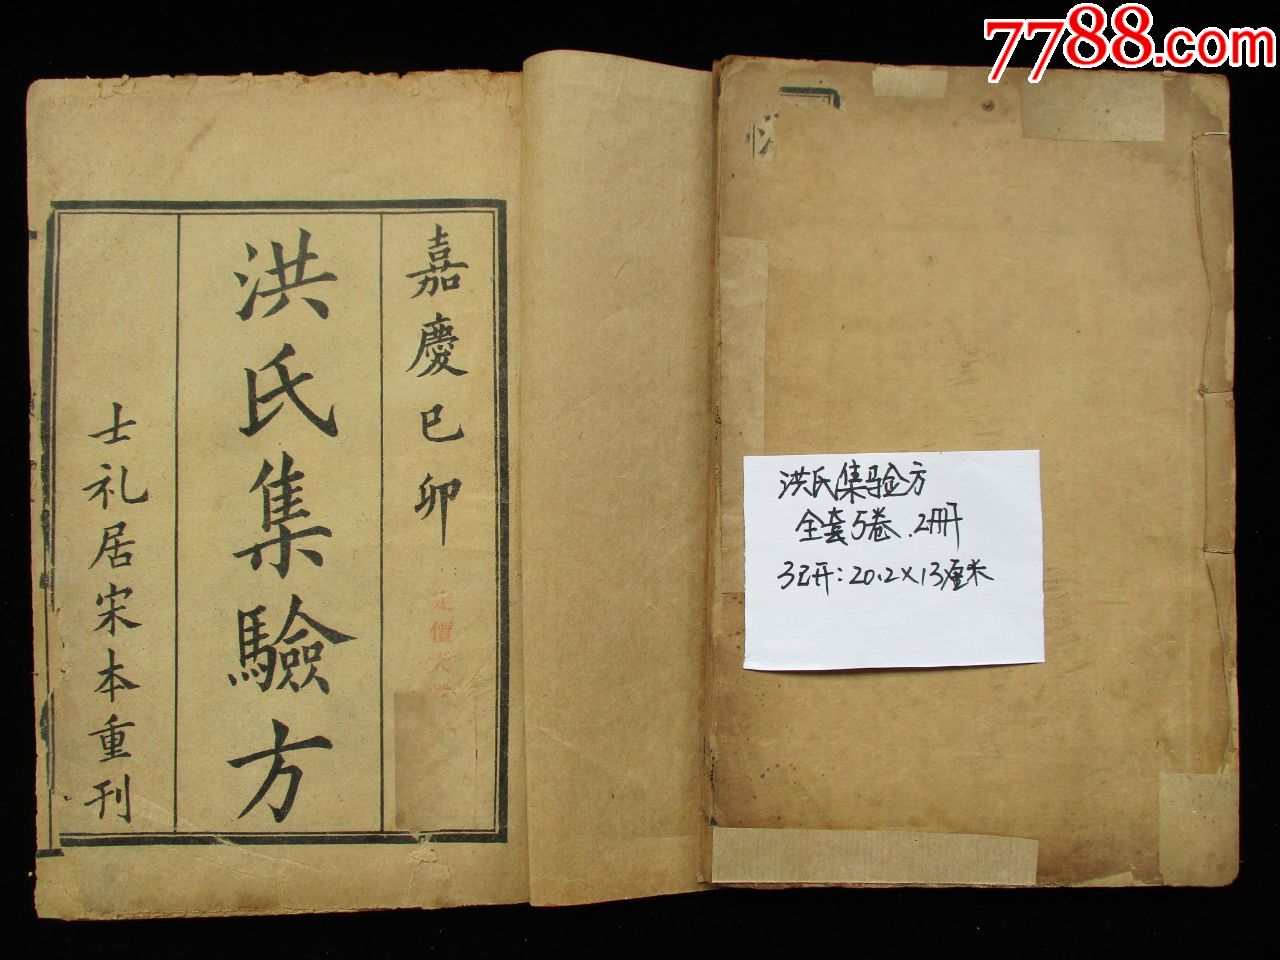 7788.com
嘉慶已卯
洪氏集驗方
士礼居宋本重刊
定價大洋
洪氏集验方
全套5卷.2册
32开:20.2×13厘米